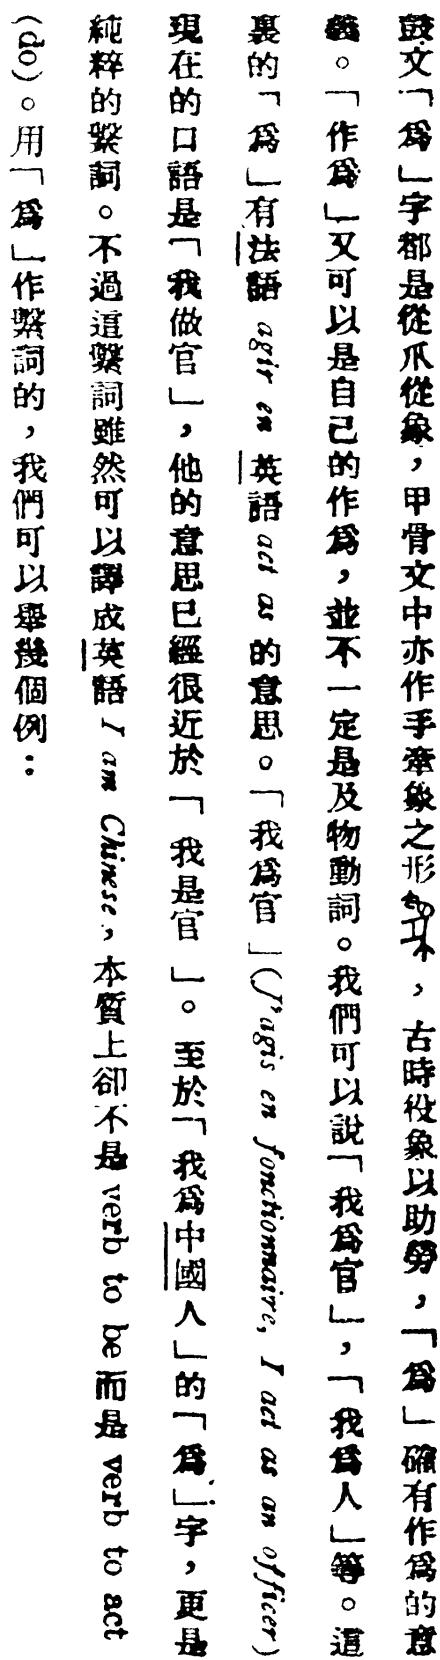 鼓文「爲」字都是從爪從象，甲骨文中亦作手牽象之形，古時役象以助勞，「爲」確有作爲的意
義。「作爲」又可以是自己的作爲，並不一定是及物動詞。我們可以說「我爲官」，「我爲人」等。這
裏的「爲」有法語 agir en 英語 act as 的意思。「我爲官」(J'agis en fonctionnaire, I act as an officer)
現在的口語是「我做官」，他的意思已經很近於「我是官」。至於「我爲中國人」的「爲」字，更是
純粹的繫詞。不過這繫詞雖然可以譯成英語 I am Chinese，本質上卻不是 verb to be 而是 verb to act
(do)。用「爲」作繫詞的，我們可以舉幾個例：